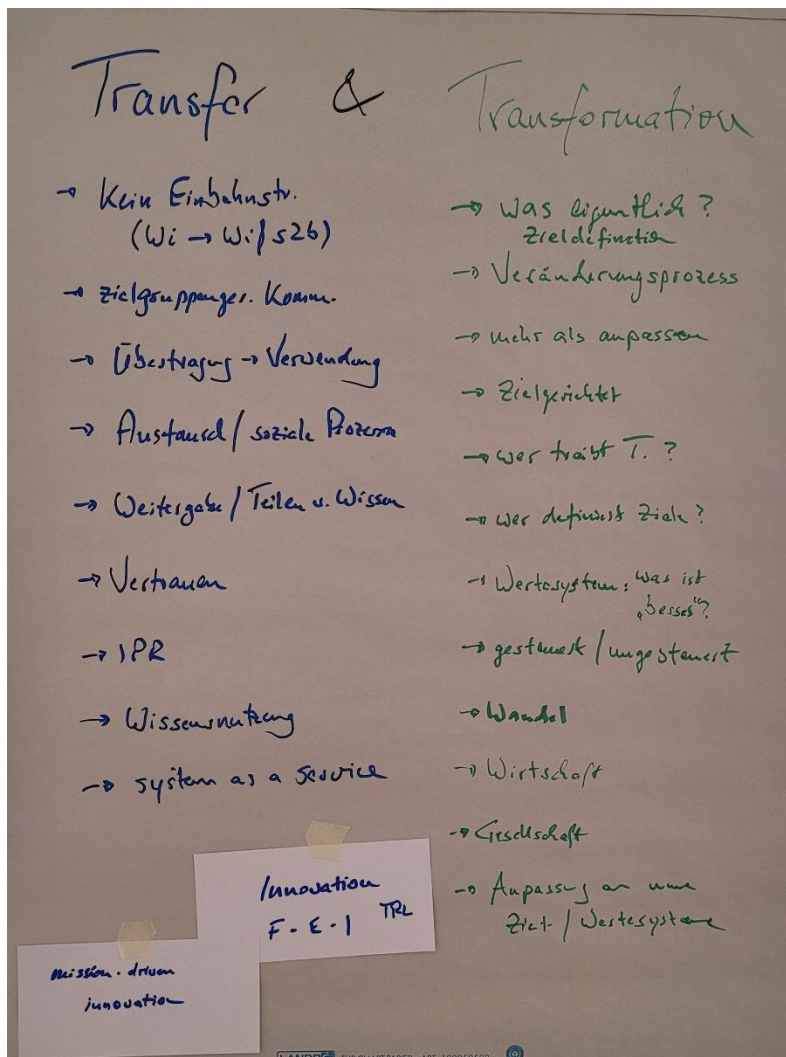 Transfer & Transformation
→ Kein Einbahnstr.
(Wi → Wi/s2b)
→ zielgruppenger. Komm.
→ Übertragung → Verwendung
→ Austausch / soziale Prozesse
→ Weitergabe / Teilen v. Wissen
→ Vertrauen
→ IPR
→ Wissensnutzung
→ system as a service
→ Was eigentlich?
Zieldefinition
→ Veränderungsprozess
→ mehr als anpassen
→ Zielgerichtet
→ wer treibt T.?
→ wer definiert Ziele?
→ Wertesystem: was ist
„besser"?
→ gesteuert / ungesteuert
→ Wandel
→ Wirtschaft
→ Gesellschaft
→ Anpassung an neue
Ziel- / Wertesysteme
Innovation
F - E - I TRL
mission-driven
innovation